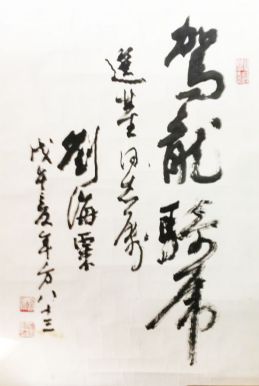 駕龍騎虎
選基同志屬
劉海粟
戊午夏年方八十三